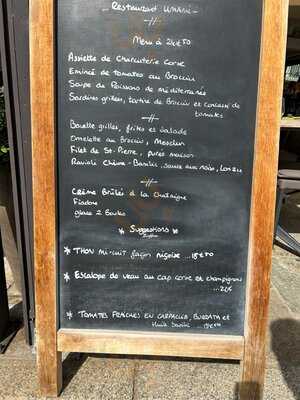 Restaurant UMANI
Menu à 24€50
Assiette de Charcuterie Corse
Emincé de tomates au Brocciu
Soupe de Poissons de méditerranée
Sardines grillées, tartare de Brocciu et concassé de
tomates
Bavette grillée, frites et salade
Omelette au Brocciu, Mesclun
Filet de St-Pierre, purée maison
Ravioli Chèvre-Basilic, sauce aux noix, Lonzu
Crème Brûlée à la Chataigne
Fiadone
glace 2 Boules
* Suggestions *
* THON mi-cuit façon niçoise ...
* Escalope de veau au cap corse et champignons
* TOMATES FRAÎCHES EN CARPACCIO, BURRATA et
Huile Basilic ...